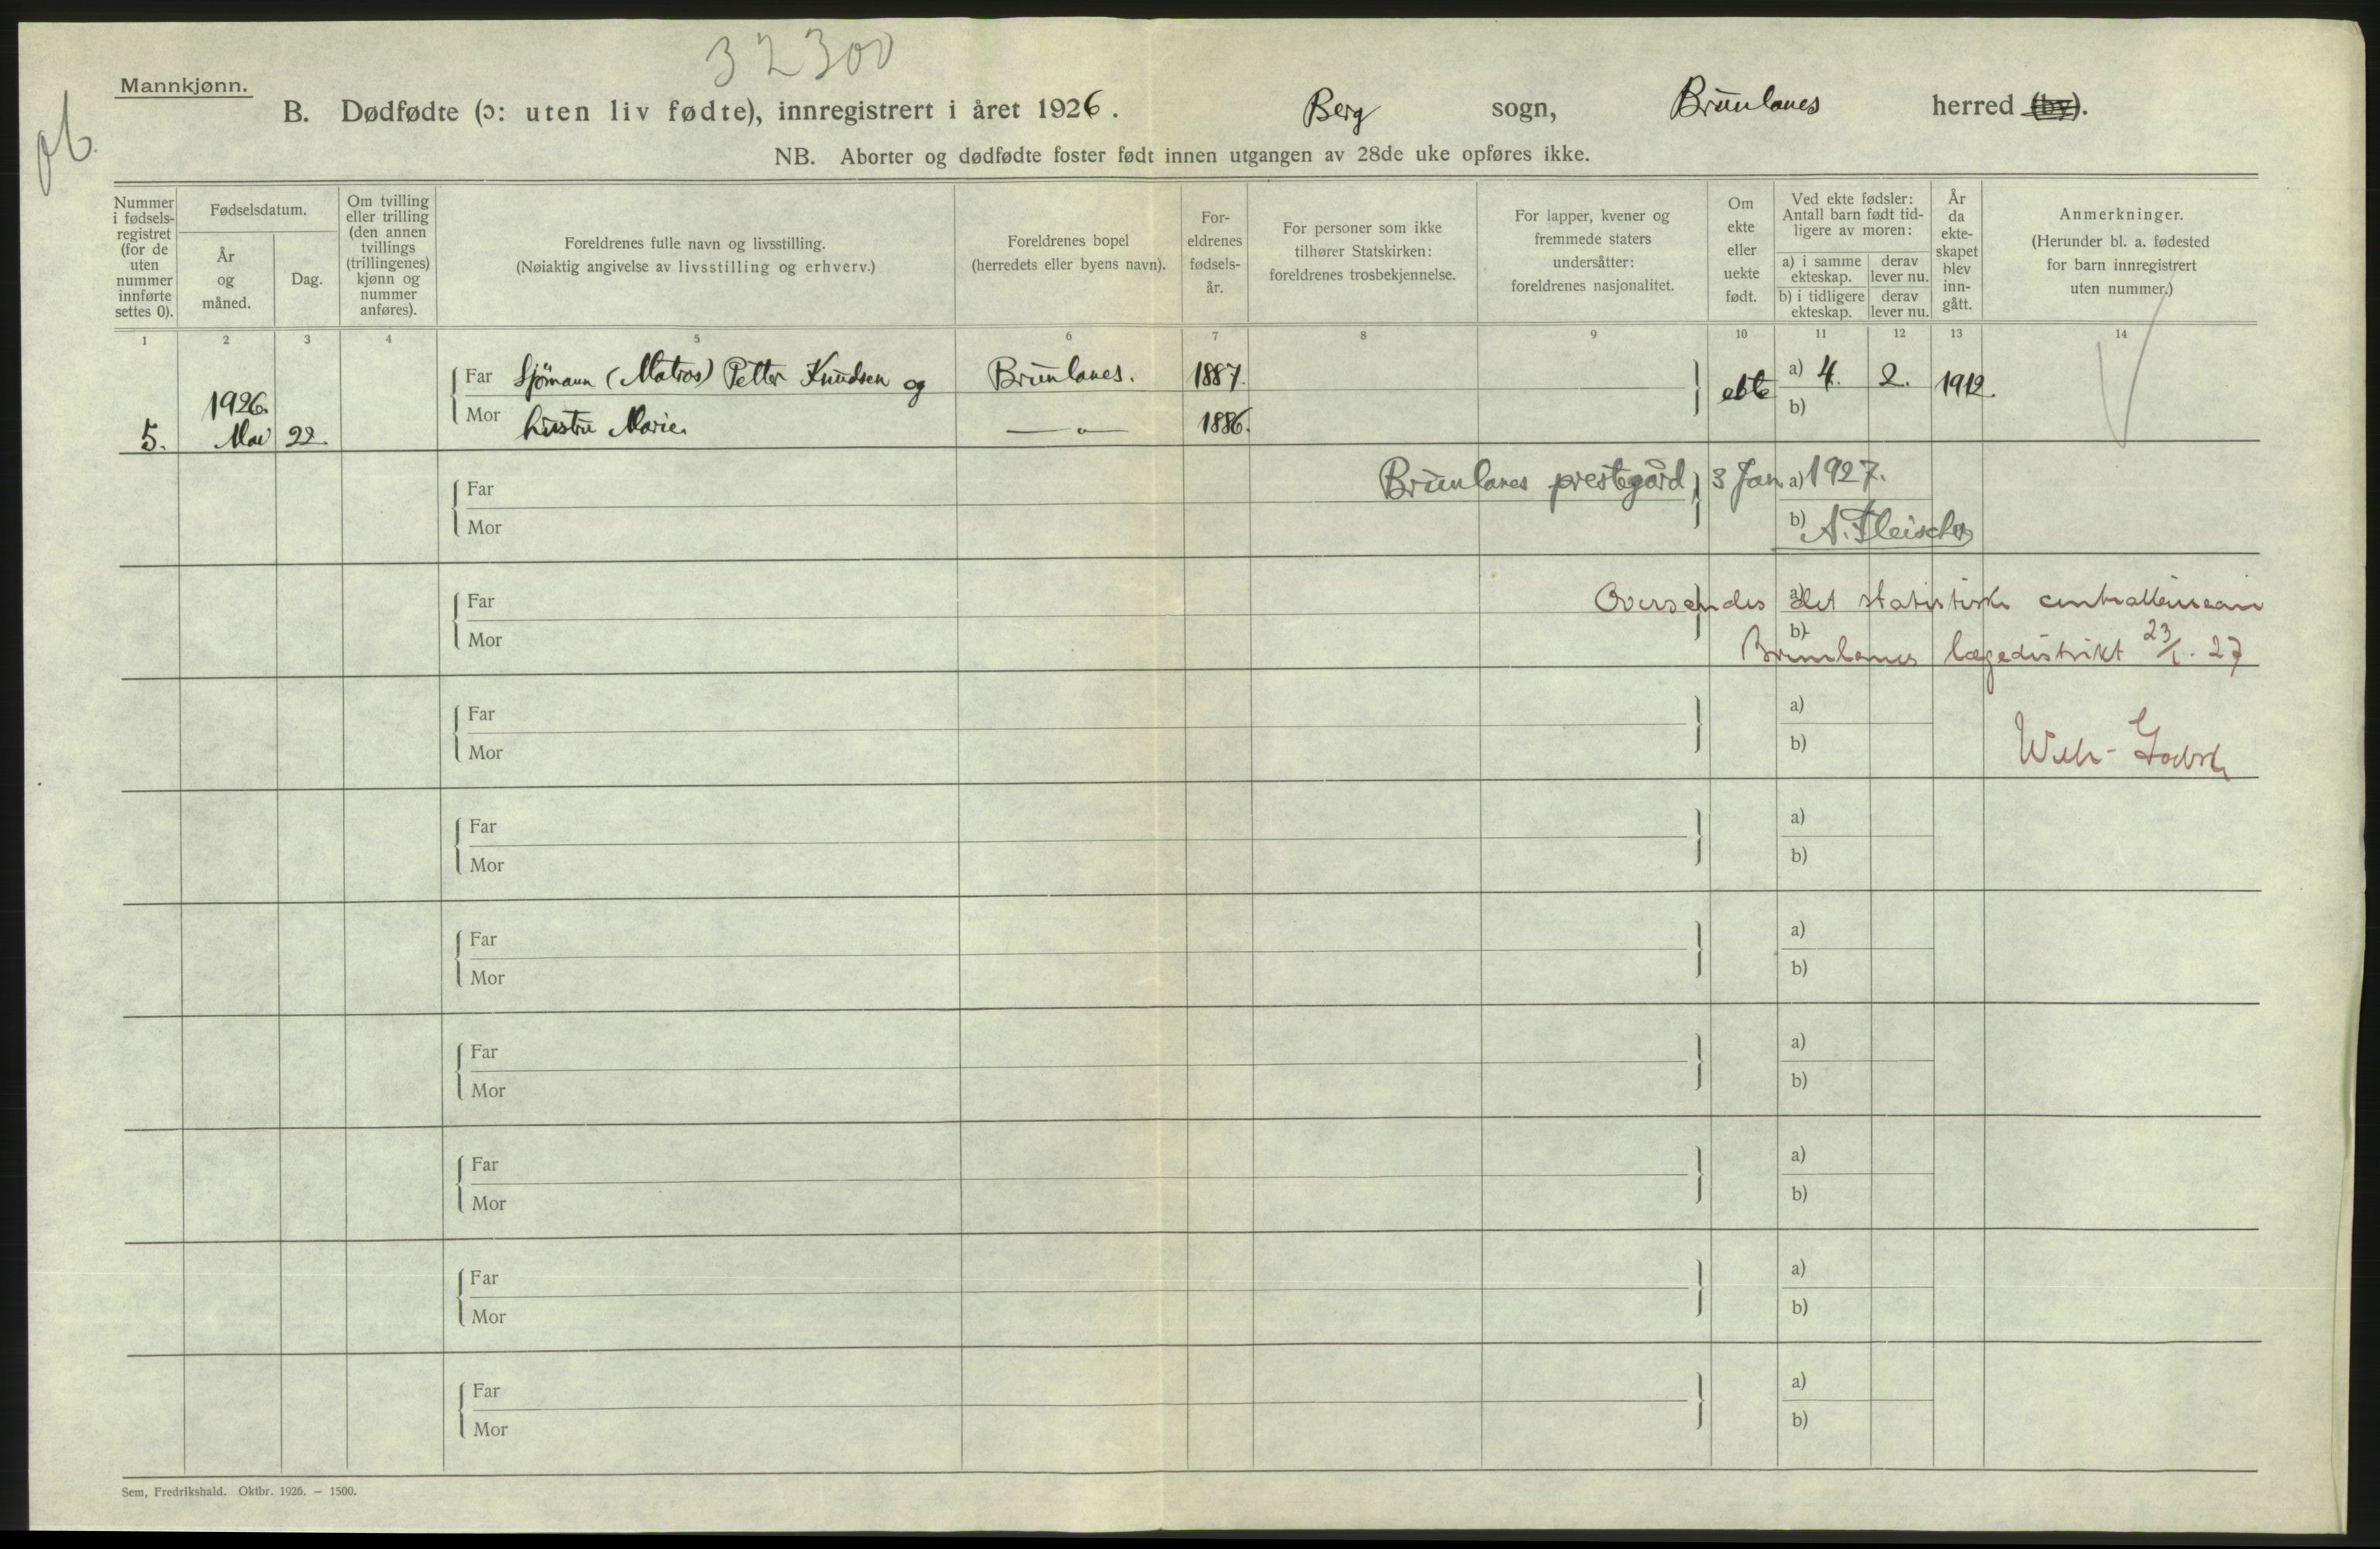 32300
Mannkjønn.
B. Dødfødte (ɔ: uten liv fødte), innregistrert i året 1926. Berg sogn, Brunlanes herred (by).
NB. Aborter og dødfødte foster født innen utgangen av 28de uke opføres ikke.
Nummer i fødsels-registret (for de uten nummer innførte settes 0).
Fødselsdatum.
År og måned.
Dag.
Om tvilling eller trilling (den annen tvillings (trillingenes) kjønn og nummer anføres).
Foreldrenes fulle navn og livsstilling.
(Nøiaktig angivelse av livsstilling og erhverv.)
Foreldrenes bopel
(herredets eller byens navn).
For-eldrenes fødsels-år.
For personer som ikke tilhører Statskirken: foreldrenes trosbekjennelse.
For lapper, kvener og fremmede staters undersåtter: foreldrenes nasjonalitet.
Om ekte eller uekte født.
Ved ekte fødsler: Antall barn født tid-ligere av moren:
a) i samme ekteskap.
derav lever nu.
b) i tidligere ekteskap.
derav lever nu.
År da ekte-skapet blev inn-gått.
Anmerkninger.
(Herunder bl. a. fødested for barn innregistrert uten nummer.)
1 2 3 4 5 6 7 8 9 10 11 12 13 14
Far Sjömann (Matros) Petter Knudsen og Brunlanes. 1887. ekte a) 4. 2. 1912.
5. 1926. Mai 22. Mor hustru Marie. — " — 1886. b)
Far Brunlanes prestegård, 3 Jan. a) 1927.
Mor b) A. Fleischer
Far Oversendes a) det statistiske centralbureau
Mor b) Brunlanes lægedistrikt 23/1. 27
Far a)
Mor b)
Far a)
Mor b)
Far a)
Mor b)
Far a)
Mor b)
Far a)
Mor b)
Far a)
Mor b)
Far a)
Mor b)
Sem, Fredrikshald. Oktbr. 1926. — 1500.